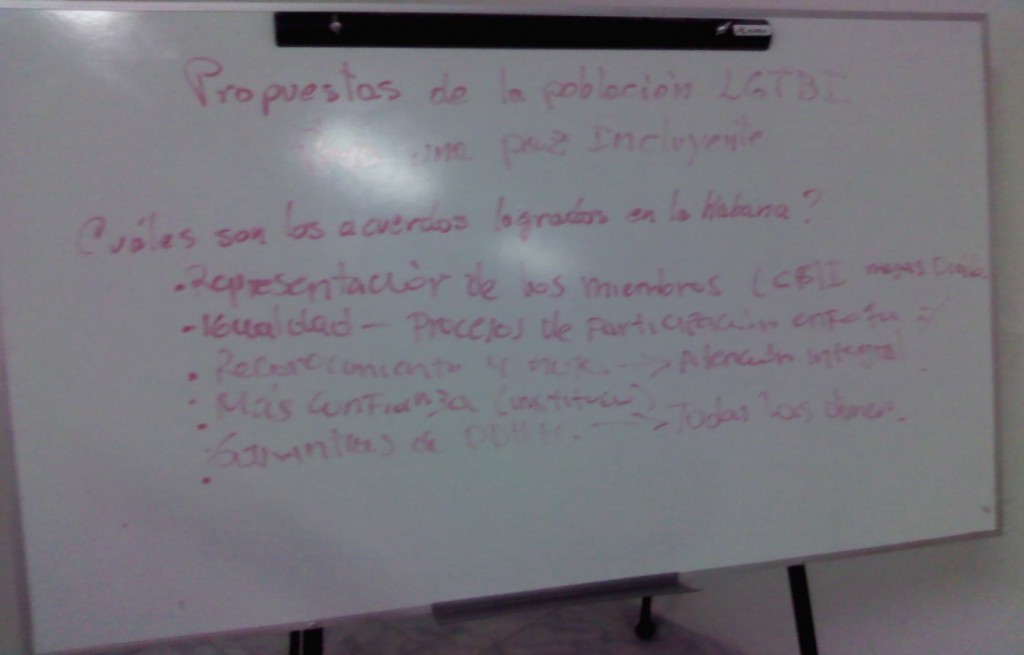 Propuestas de la población LGTBI
una paz Incluyente
Cuáles son los acuerdos logrados en la Habana?
• Representación de los miembros
• Igualdad - Procesos de Participación
• Reconocimiento y → Atención integral
• Más confianza
• Garantías de DDHH. → Todas las
•